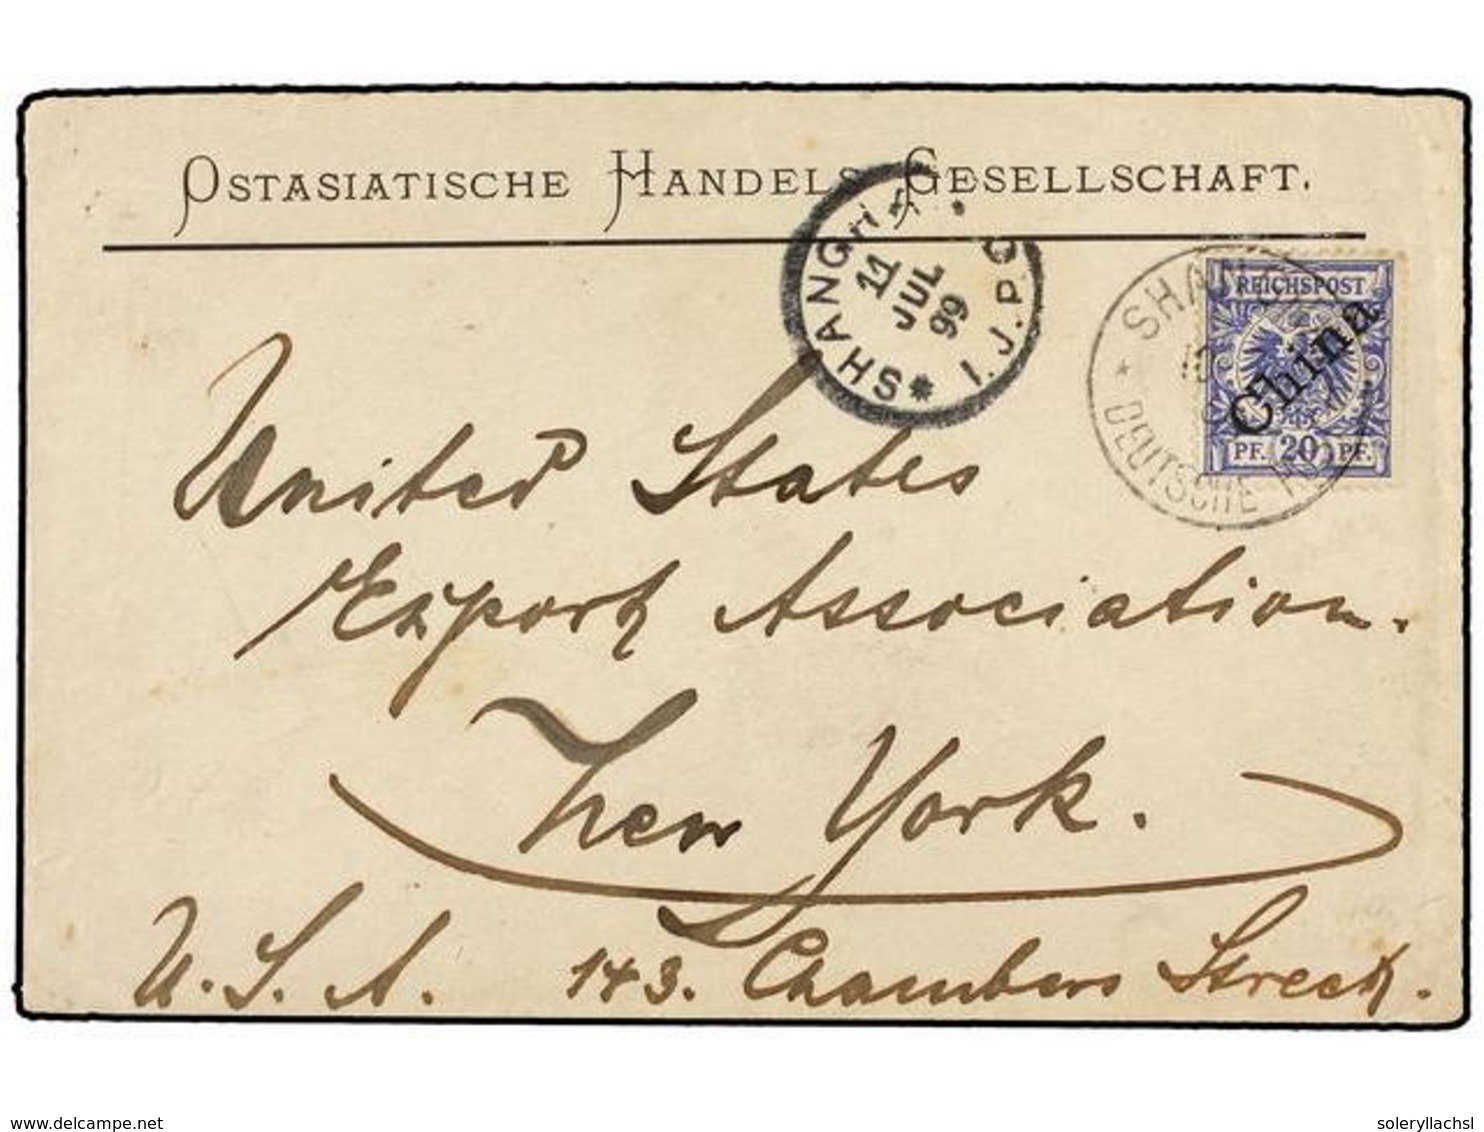 OSTASIATISCHE HANDELS GESELLSCHAFT.
SHANGHAI
11
JUL
99
I.J.P.O
SHAN
DEUTSCHE
REICHSPOST
China
PF. 20 PF.
United States
Export Association.
New York.
U.S.A. 143. Chambers Street.
www.delcampe.net
soleryllachsl